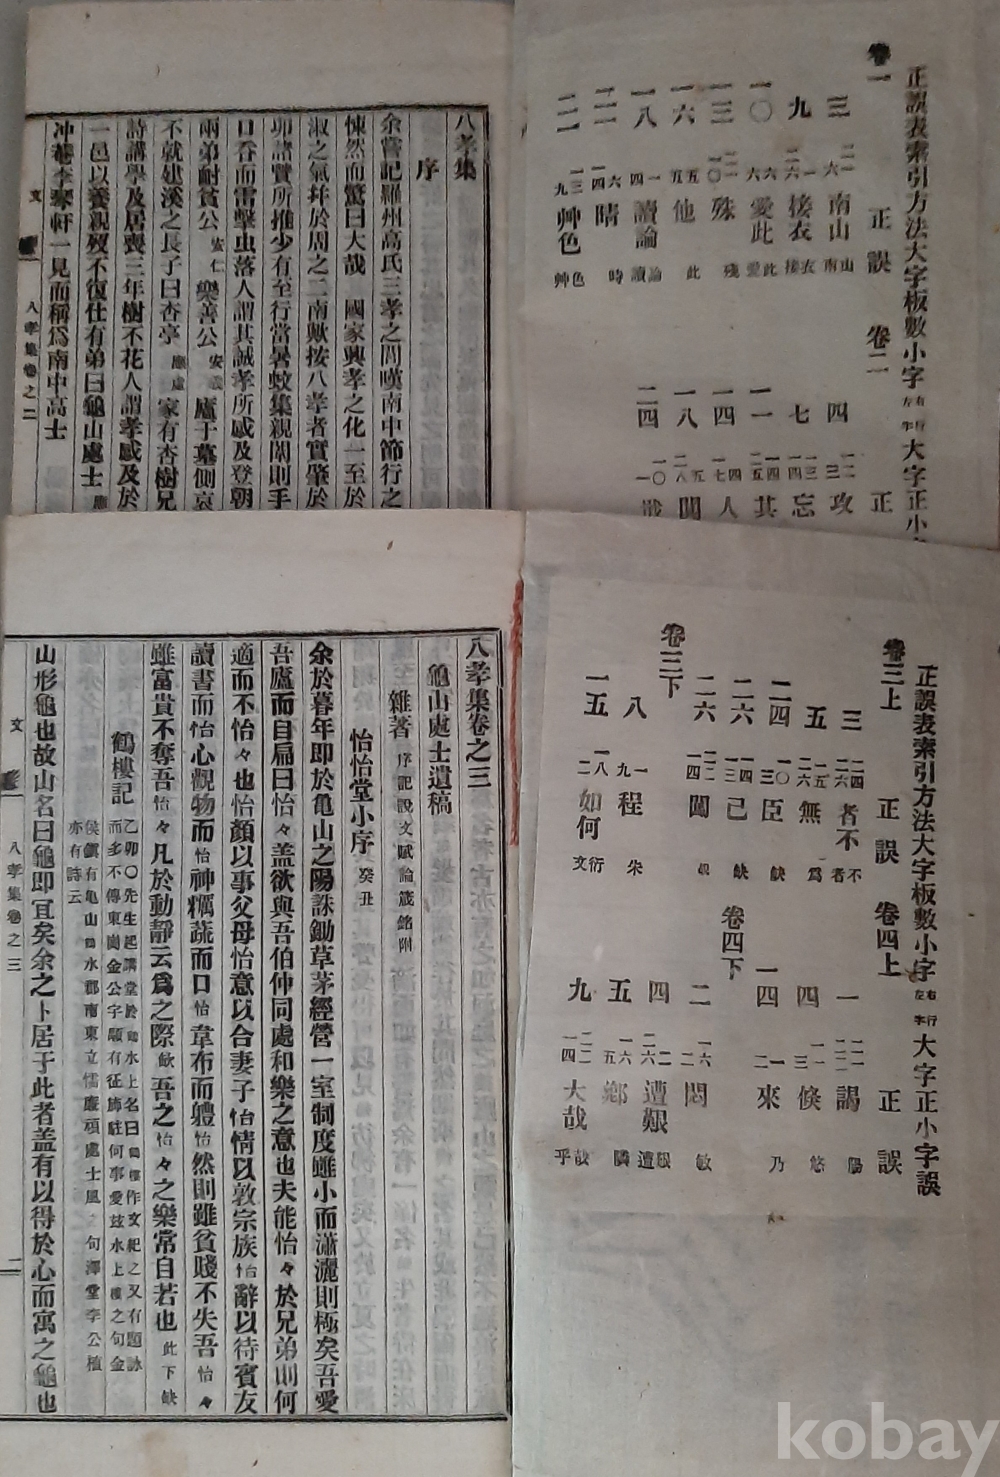 正誤表索引方法大字板數小字右行左字大字正小
卷一 正誤 卷二 正
三 南山 南山
九 接衣 接衣
一〇 愛此 愛此
一三 殊 殘
一六 他 此
一八 讀論 讀論
二一 晴 時
二二 艸色 艸色
四 攻
七 忘
一一 其
一四 人
一八 閒
二四 戢
八孝集
序
余嘗記羅州高氏三孝之閭嘆南中節行之
悚然而驚曰大哉 國家興孝之化一至於
淑之氣㘯於周之二南歟按八孝者實肇於
卯諸賢所推少有至行當暑蚊集親闈則手
口吞而雷擊虫落人謂其誠孝所感及登朝
兩弟耐貧公安仁樂善公安義廬于墓側哀
不就建溪之長子曰杏亭應虛家有杏樹兄
詩講學及居喪三年樹不花人謂孝感及於
一邑以養親歿不復仕有弟曰龜山處士應
冲菴李摩軒一見而稱爲南中高士
文
八孝集卷之二
正誤表索引方法大字板數小字右行左字大字正小字誤
卷三上 正誤 卷四上 正誤
三 者不 者不
五 無 爲
二四 臣 缺
二六 己 缺
二六 闖
卷三下
八 程 朱
一五 如何 文衍
一 謁 陽
四 倏 悠
一四 來 乃
卷四下
二 閔 敏
四 遭艱 遭艱
五 鄉 隣
九 大哉 哉乎
八孝集卷之三
龜山處士遺稿
雜著序記說文賦論箴銘附
怡怡堂小序癸丑
余於暮年即於龟山之陽誅鋤草茅經營一室制度雖小而瀟灑則極矣吾愛
吾廬而自扁曰怡々盖欲與吾伯仲同處和樂之意也夫能怡々於兄弟則何
適而不怡々也怡顏以事父母怡意以合妻子怡情以敦宗族怡辭以待賓友
讀書而怡心觀物而怡神糲蔬而口怡韋布而軆怡然則雖貧賤不失吾怡々
雖富貴不奪吾怡々凡於動靜云爲之際歛吾之怡々之樂常自若也此下缺
鶴樓記乙卯〇先生起講堂於鶴水上名曰鶴樓作文紀之又有題詠
而多不傳東崗金公宇顒有征斾駐何事愛玆水上樓之句金
侯鎭有龟山鶴水郡南東立懦廉頑處士風之句澤堂李公植
亦有詩云
山形龜也故山名曰龜即宜矣余之卜居于此者盖有以得於心而寓之龜也
文
八孝集卷之三
一
kobay